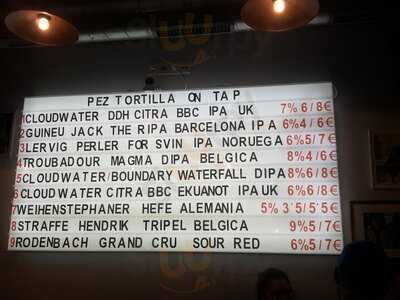 PEZ TORTILLA ON TAP
1 CLOUDWATER DDH CITRA BBC IPA UK 7% 6/8€
2 GUINEU JACK THE RIPA BARCELONA IPA 6%4/6€
3 LERVIG PERLER FOR SVIN IPA NORUEGA 6%5/7€
4 TROUBADOUR MAGMA DIPA BELGICA 8%4/6€
5 CLOUDWATER/BOUNDARY WATERFALL DIPA 8%6/8€
6 CLOUDWATER CITRA BBC EKUANOT IPA UK 6%6/8€
7 WEIHENSTEPHANER HEFE ALEMANIA 5% 3'5/5'5€
8 STRAFFE HENDRIK TRIPEL BELGICA 9%5/7€
9 RODENBACH GRAND CRU SOUR RED 6%5/7€